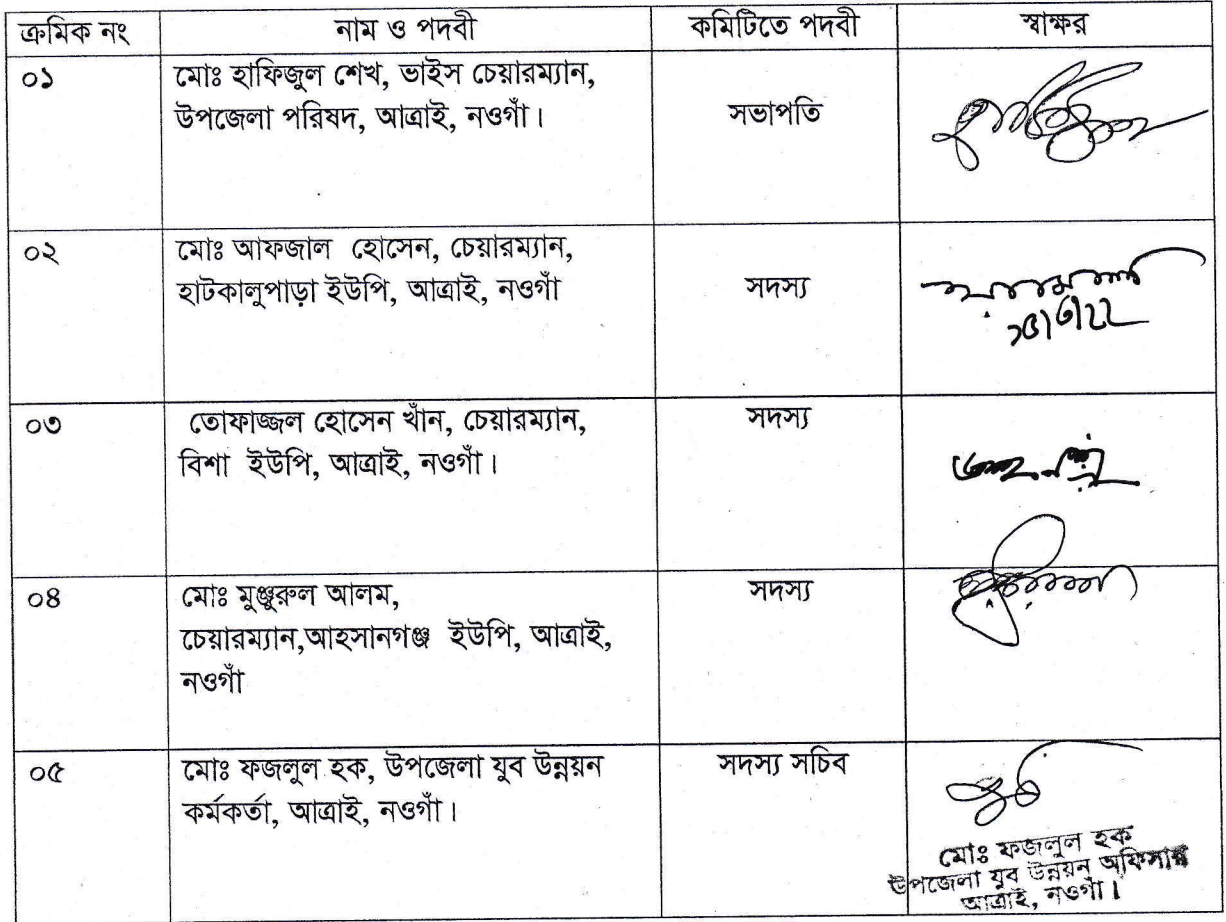 ক্রমিক নং নাম ও পদবী কমিটিতে পদবী স্বাক্ষর
০১ মোঃ হাফিজুল শেখ, ভাইস চেয়ারম্যান,
উপজেলা পরিষদ, আত্রাই, নওগাঁ। সভাপতি
০২ মোঃ আফজাল হোসেন, চেয়ারম্যান,
হাটকালুপাড়া ইউপি, আত্রাই, নওগাঁ সদস্য
১৫/৩/২২
০৩ তোফাজ্জল হোসেন খাঁন, চেয়ারম্যান, সদস্য
বিশা ইউপি, আত্রাই, নওগাঁ।
০৪ মোঃ মুঞ্জুরুল আলম, সদস্য
চেয়ারম্যান,আহসানগঞ্জ ইউপি, আত্রাই,
নওগাঁ
০৫ মোঃ ফজলুল হক, উপজেলা যুব উন্নয়ন সদস্য সচিব
কর্মকর্তা, আত্রাই, নওগাঁ।
মোঃ ফজলুল হক
উপজেলা যুব উন্নয়ন অফিসার
আত্রাই, নওগাঁ।